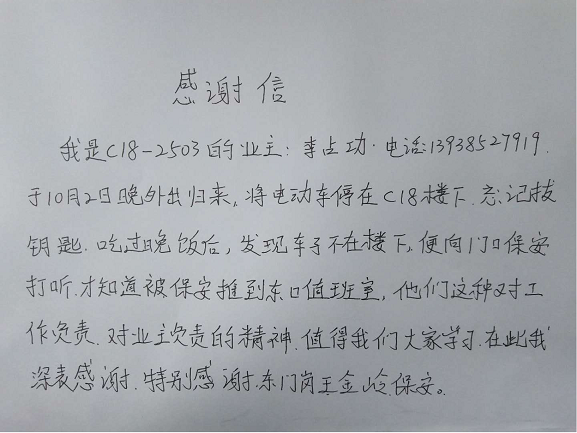 感谢信
我是C18-2503的业主:李占功·电话:13938527919.
于10月2日晚外出归来,将电动车停在C18楼下.忘记拔
钥匙.吃过晚饭后,发现车子不在楼下,便向门口保安
打听.才知道被保安推到东口值班室,他们这种对工
作负责.对业主负责的精神.值得我们大家学习.在此我
深表感谢.特别感谢.东门岗王金岭保安。